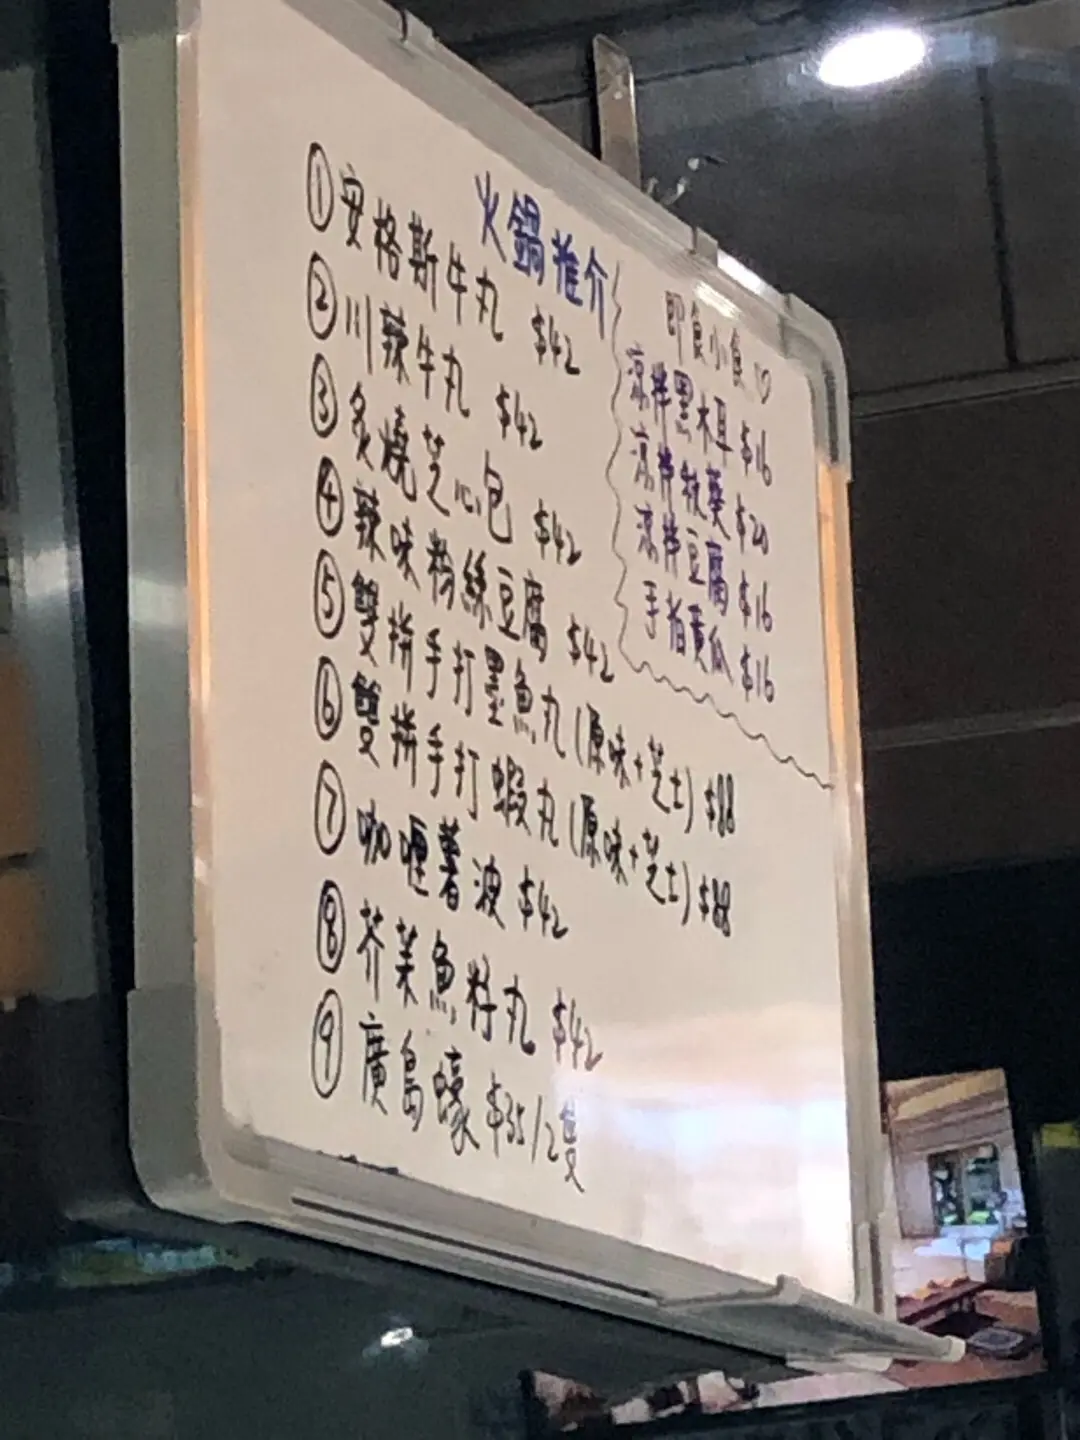 火鍋推介
①安格斯牛丸 $42
②川辣牛丸 $42
③炙燒芝心包 $42
④辣味粉絲豆腐 $42
⑤雙拼手打墨魚丸(原味+芝士) $88
⑥雙拼手打蝦丸(原味+芝士) $88
⑦咖喱薯波 $42
⑧芥茉魚籽丸 $42
⑨廣島蠔 $35/2隻
即食小食♡
涼拌黑木耳 $16
涼拌秋葵 $20
涼拌豆腐 $16
手拍黃瓜 $16